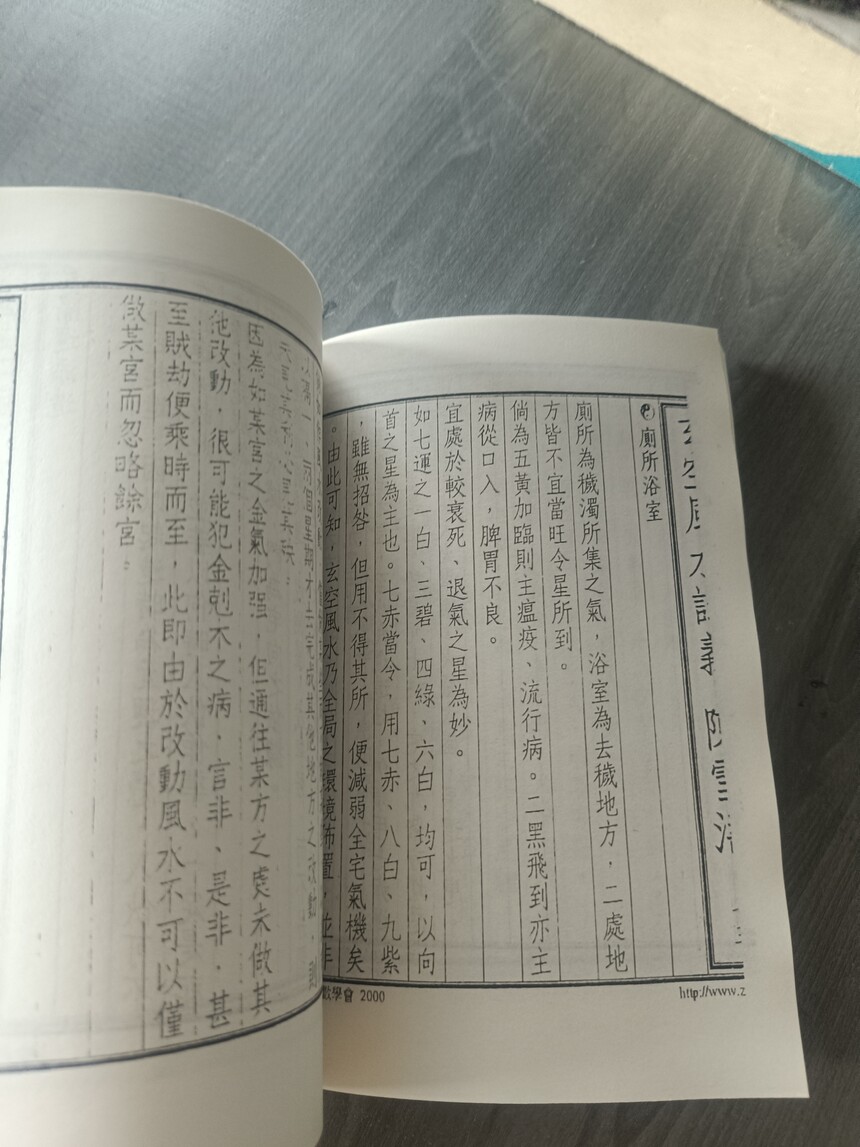 ☯廁所浴室
廁所為穢濁所集之氣，浴室為去穢地方，二處地
方皆不宜當旺令星所到。
倘為五黃加臨則主瘟疫、流行病。二黑飛到亦主
病從口入，脾胃不良。
宜處於較衰死、退氣之星為妙。
如七運之一白、三碧、四綠、六白，均可，以向
首之星為主也。七赤當令，用七赤、八白、九紫
，雖無招咎，但用不得其所，便減弱全宅氣機矣
。由此可知，玄空風水乃全局之環境佈置，並非
數學會 2000
http://www.z
個星期才去完成其他地方之改動，
因為如某宮之金氣加強，但通往某方之處未做其
他改動，很可能犯金剋木之病，言非、是非、甚
至賊劫便乘時而至，此即由於改動風水不可以僅
做某宮而忽略餘宮。